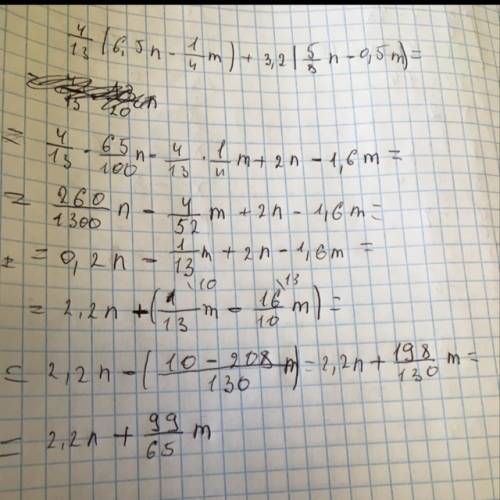 4/13 (6,5n - 1/4 m) + 3,2 (5/8 n - 0,5m) =
= 4/13 · 65/100 n - 4/13 · 1/4 m + 2n - 1,6m =
= 260/1300 n - 4/52 m + 2n - 1,6m =
= 0,2n - 1/13 m + 2n - 1,6m =
= 2,2n + (1\10/13 m - 16\13/10 m) =
= 2,2n - (10 - 208/130 m) = 2,2n + 198/130 m =
= 2,2n + 99/65 m